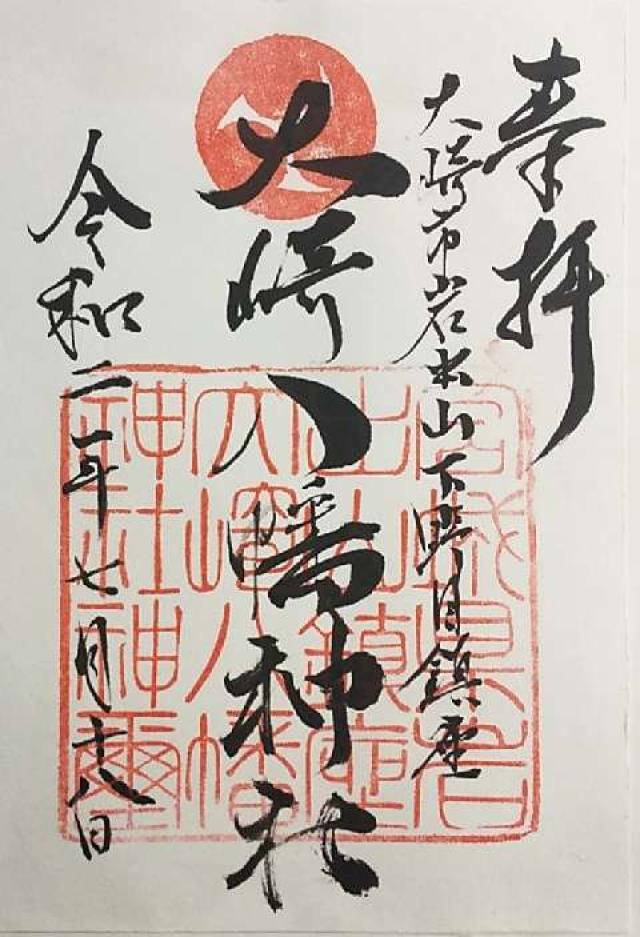 奉拝
大崎市岩出山下野目鎮座
大崎八幡神社
令和二年七月十八日
宮城県岩
出山鎮座
大崎八幡
神社神璽